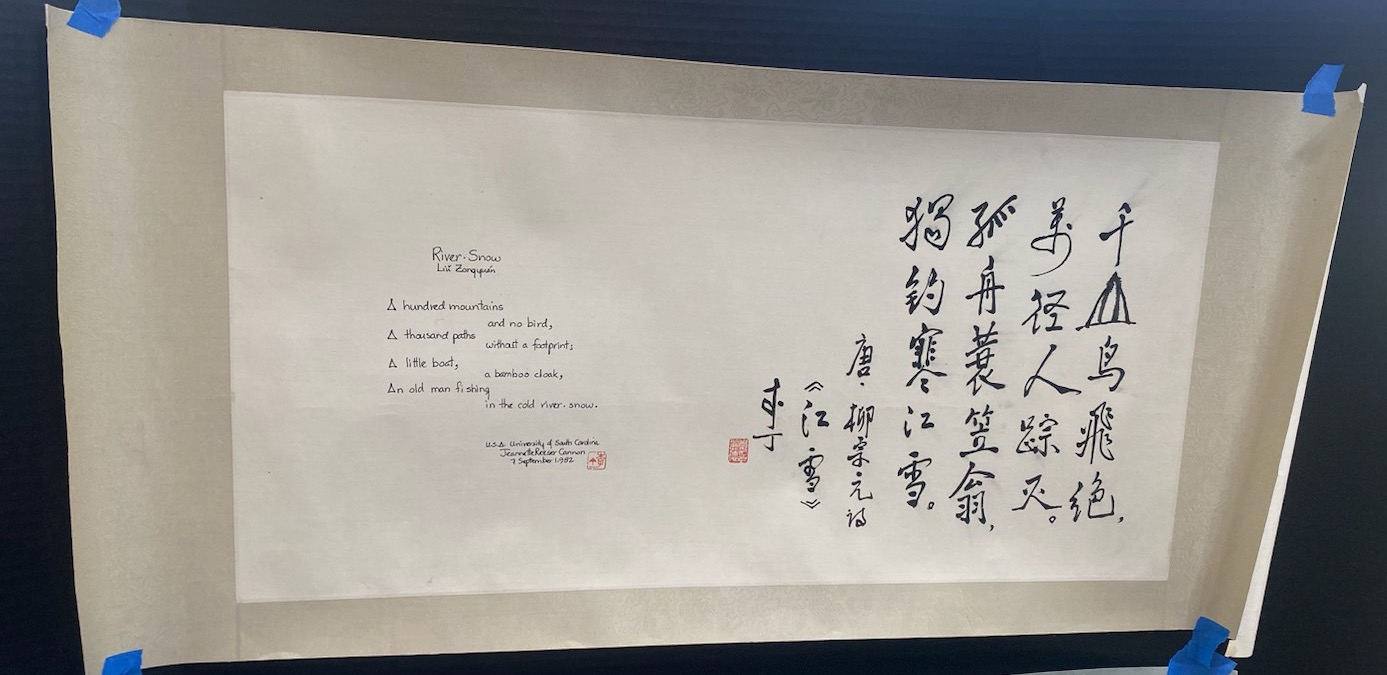 River·Snow
Liŭ Zongyuán
A hundred mountains
and no bird,
A thousand paths
without a footprint;
A little boat,
a bamboo cloak,
An old man fishing
in the cold river·snow.
U.S.A. University of South Carolina
Jeannette Reeser Cannon
7 September 1982
千山鸟飛绝,
萬径人踪灭。
孤舟蓑笠翁,
獨钓寒江雪。
唐·柳宗元诗
《江雪》